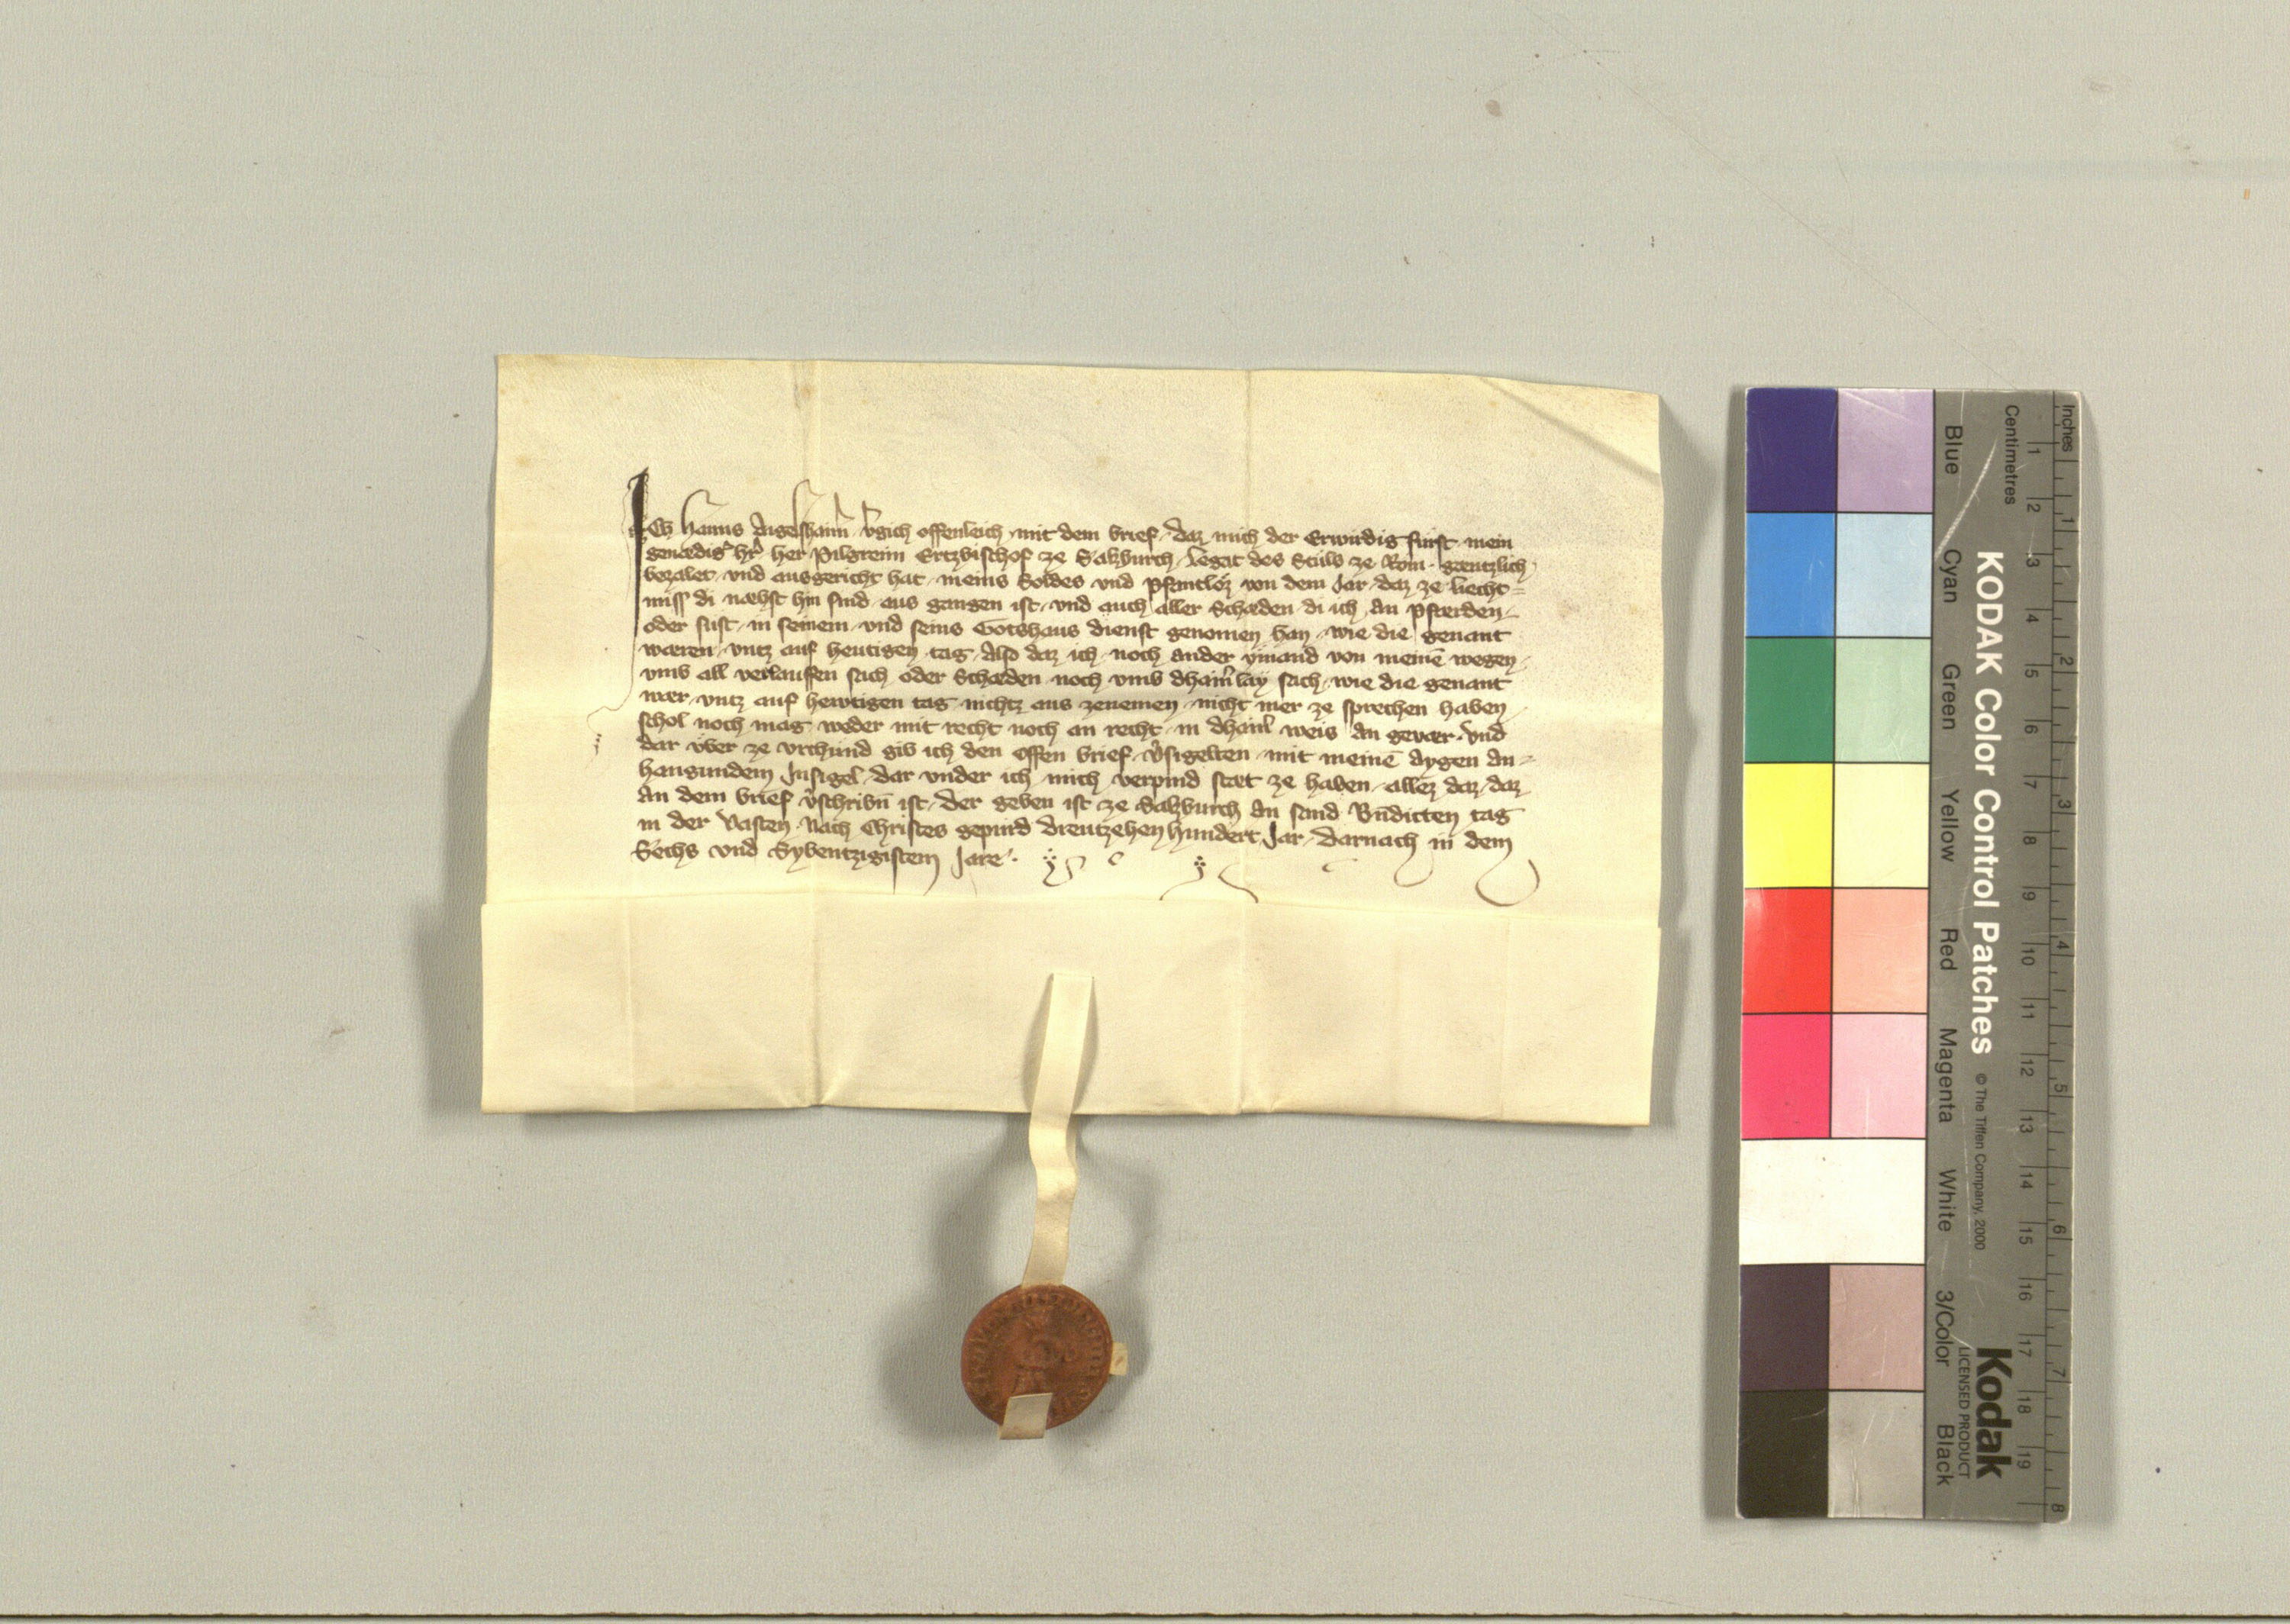 Ich Hanns Angelshaim v̓gich offenleich mit dem brief, daz mich der Erwirdig fürst mein
genædig̓ hr̓ her Pilgreim Ertzbischof ze Salzburch, Legat des Stuls ze Rom, gæntzlich
bezalet, vnd ausgericht hat, meins Soldes vnd pfantlóz von dem Jar, daz ze liecht=
miss di næhst hin sind aus gangen ist, vnd auch aller Schæden di ich an pfærden,
oder sust, in seinem, vnd seins Gotshaus dienst genomen han, wie die genant
wæren, vntz auf heutigen tag, Also daz ich, noch ander ymand von meinē wegen,
vmb all verlauffen sach oder Schæden noch vmb dhain̓lay sach, wie die genant
wær, vntz auf hewtigen tag nichtz aus zenemen, nicht mer ze sprechen haben
schol noch mag weder mit recht noch an recht, in dhain̓ weis an gevær. Vnd
dar über ze vrchund gib ich den offen brief, v̓sigelten, mit meinē aygen an=
hangundem Insigel, dar vnder ich mich verpind stæt ze haben, allez daz, daz
an dem brief v̓schribn̄ ist, Der geben ist ze Salzburch an sand Bn̄dicten tag
in der Vasten, Nach Christes gepurd dreutzehenhundert Jar, darnach in dem
Sechs vnd Sybentzigistem Jare.
Inches
Centimetres
1 2 3 4 5 6 7 8
1 2 3 4 5 6 7 8 9 10 11 12 13 14 15 16 17 18 19
KODAK Color Control Patches
© The Tiffen Company, 2000
Kodak
LICENSED PRODUCT
Blue Cyan Green Yellow Red Magenta White 3/Color Black